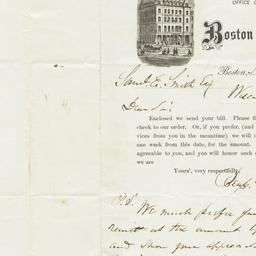 OFFICE O
Boston
Boston,
Saml. E. Smith Esq
Dear Sir
Enclosed we send your bill. Please fi
check to our order. Or, if you prefer, (and
vices from you in the meantime) we will d
one week from this date, for the amount.
agreeable to you, and you will honor such d
we are
Yours', very respectfully,
P.S. We much prefer you
remit us the amount by
and show your apprecia